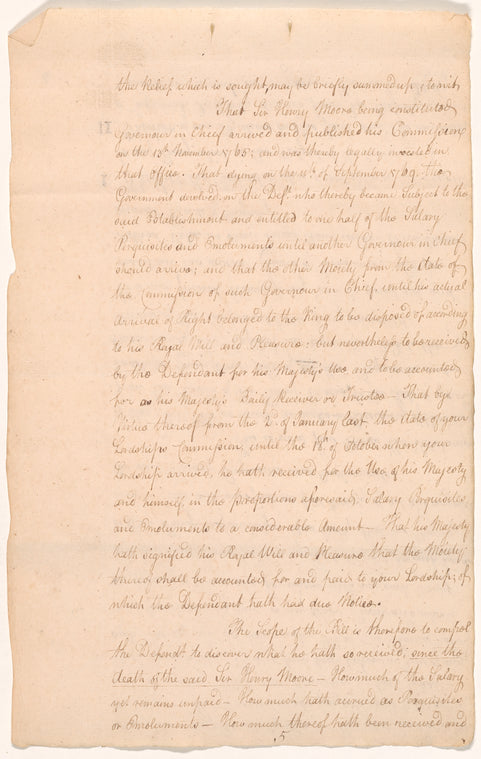 the Relief which is sought, may be briefly summed up; to wit,
That Sir Henry Moore being constituted
Governour in Chief arrived and published his Commission
on the 13th November 1765; and was thereby legally invested in
that Office. That dying on the 11th. of September 1769. the
Government devolved on the Deft. who thereby became Subject to the
said Establishment and entitled to one half of the Salary
Perquisites and Emoluments until another Governour in Chief
should arrive; and that the other Moiety from the date of
the Commission of such Governour in Chief until his actual
Arrival of Right belonged to the King to be disposed of according
to his Royal Will and Pleasure: but nevertheless to be received
by the Defendant for his Majesty's Use and to be accounted
for as his Majesty's Baily Receiver or Trustee — That by
Virtue thereof from the 2d. of January last, the date of your
Lordships Commission, until the 18th. of October when your
Lordship arrived, he hath received for the Use of his Majesty
and himself, in the proportions aforesaid, Salary Perquisites
and Emoluments to a considerable Amount — That his Majesty
hath signified his Royal Will and Pleasure that the Moiety
thereof shall be accounted for and paid to your Lordship; of
which the Defendant hath had due Notice.
The Scope of the Bill is therefore to compel
the Defendt. to discover what he hath so received, since the
death of the said Sir Henry Moore — How much of the Salary
yet remains unpaid — How much hath accrued as Perquisites
or Emoluments — How much thereof hath been received and
5